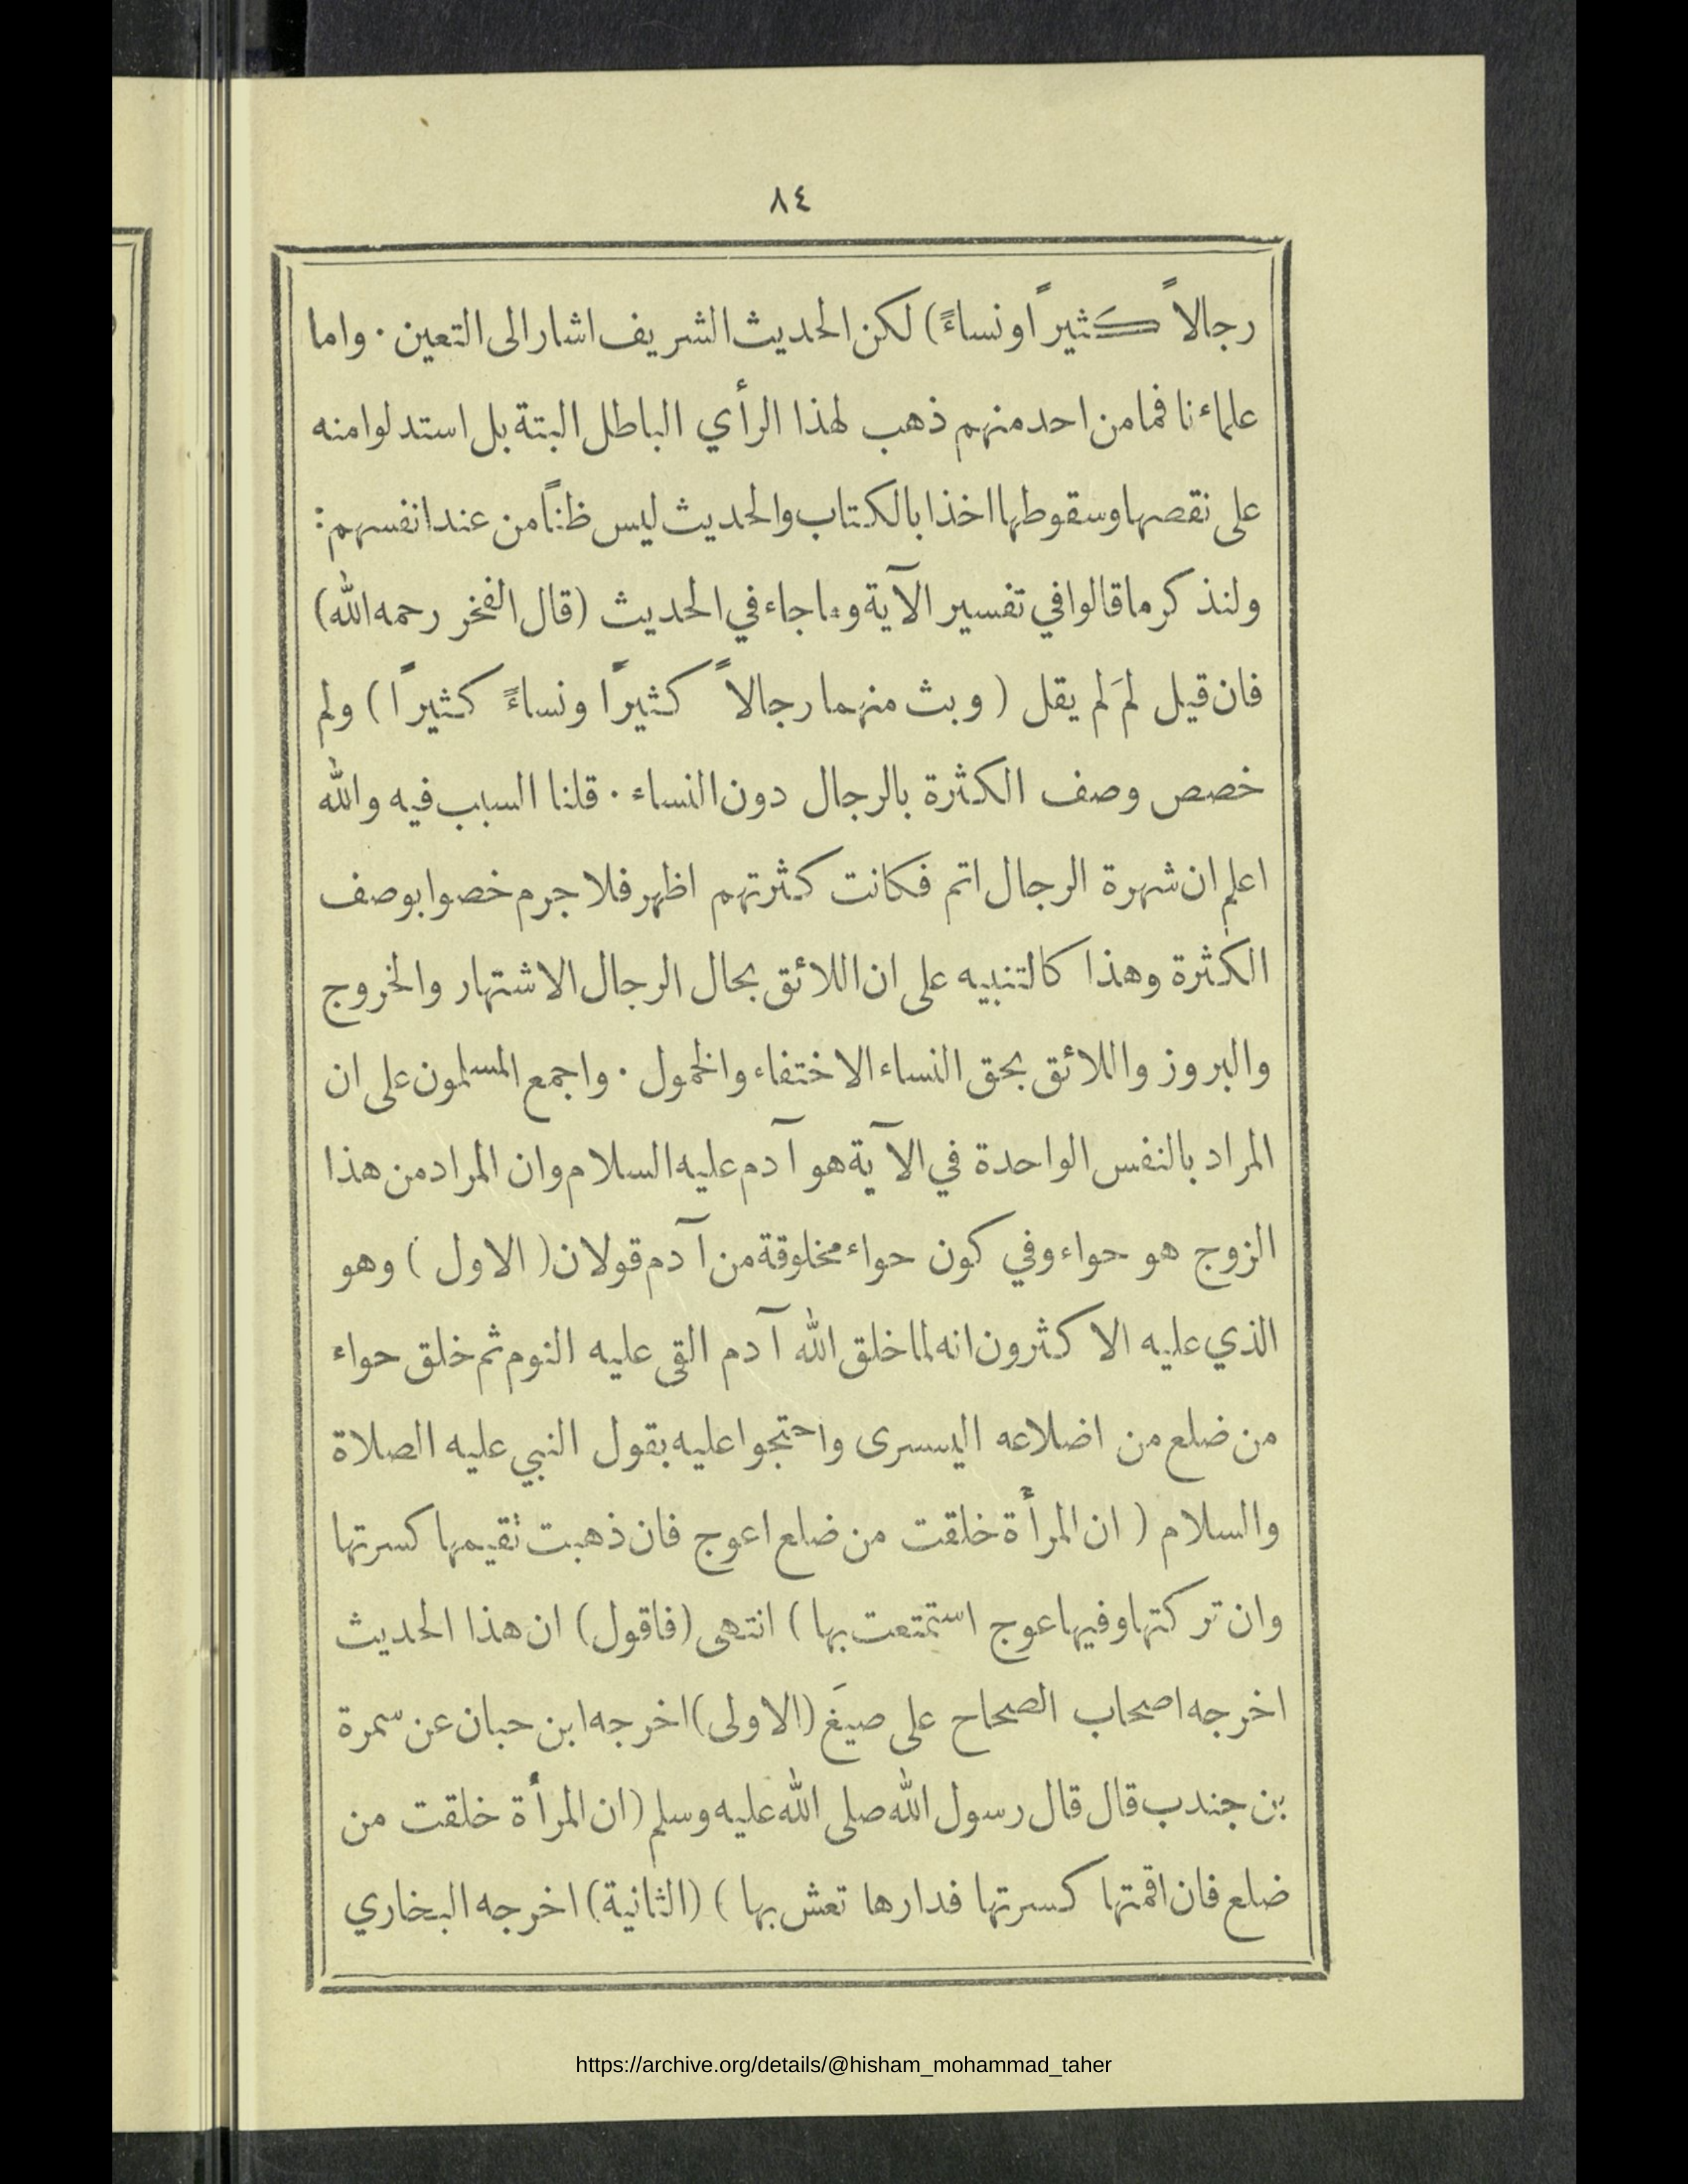 ٨٤
رجالاً كثيراً ونساءً) لكن الحديث الشريف اشار الى التعين . واما
علماءنا فما من احد منهم ذهب لهذا الرأي الباطل البتة بل استدلوا منه
على نقصها وسقوطها اخذا بالكتاب والحديث ليس ظناً من عند انفسهم :
ولنذكر ما قالوا في تفسير الآية وما جاء في الحديث (قال الفخر رحمه الله)
فان قيل لمَ لم يقل ( وبث منهما رجالاً كثيرًا ونساءً كثيرًا ) ولم
خصص وصف الكثرة بالرجال دون النساء . قلنا السبب فيه والله
اعلم ان شهرة الرجال اتم فكانت كثرتهم اظهر فلا جرم خصوا بوصف
الكثرة وهذا كالتنبيه على ان اللائق بحال الرجال الاشتهار والخروج
والبروز واللائق بحق النساء الاختفاء والخمول . واجمع المسلمون على ان
المراد بالنفس الواحدة في الآية هو آدم عليه السلام وان المراد من هذا
الزوج هو حواء وفي كون حواء مخلوقة من آدم قولان ( الاول ) وهو
الذي عليه الاكثرون انه لما خلق الله آدم القى عليه النوم ثم خلق حواء
من ضلع من اضلاعه اليسرى واحتجوا عليه بقول النبي عليه الصلاة
والسلام ( ان المرأة خلقت من ضلع اعوج فان ذهبت تقيمها كسرتها
وان تركتها وفيها عوج استمتعت بها ) انتهى (فاقول) ان هذا الحديث
اخرجه اصحاب الصحاح على صيَغ (الاولى) اخرجه ابن حبان عن سمرة
بن جندب قال قال رسول الله صلى الله عليه وسلم (ان المرأة خلقت من
ضلع فان اقمتها كسرتها فدارها تعش بها ) (الثانية) اخرجه البخاري
https://archive.org/details/@hisham_mohammad_taher